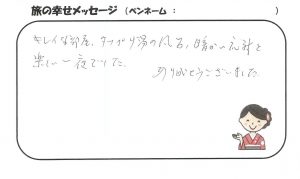 旅の幸せメッセージ（ペンネーム：　　　　　　　）
キレイな部屋、すべり湯のお風呂、暖かい
楽しい一夜でした。
ありがとうございました